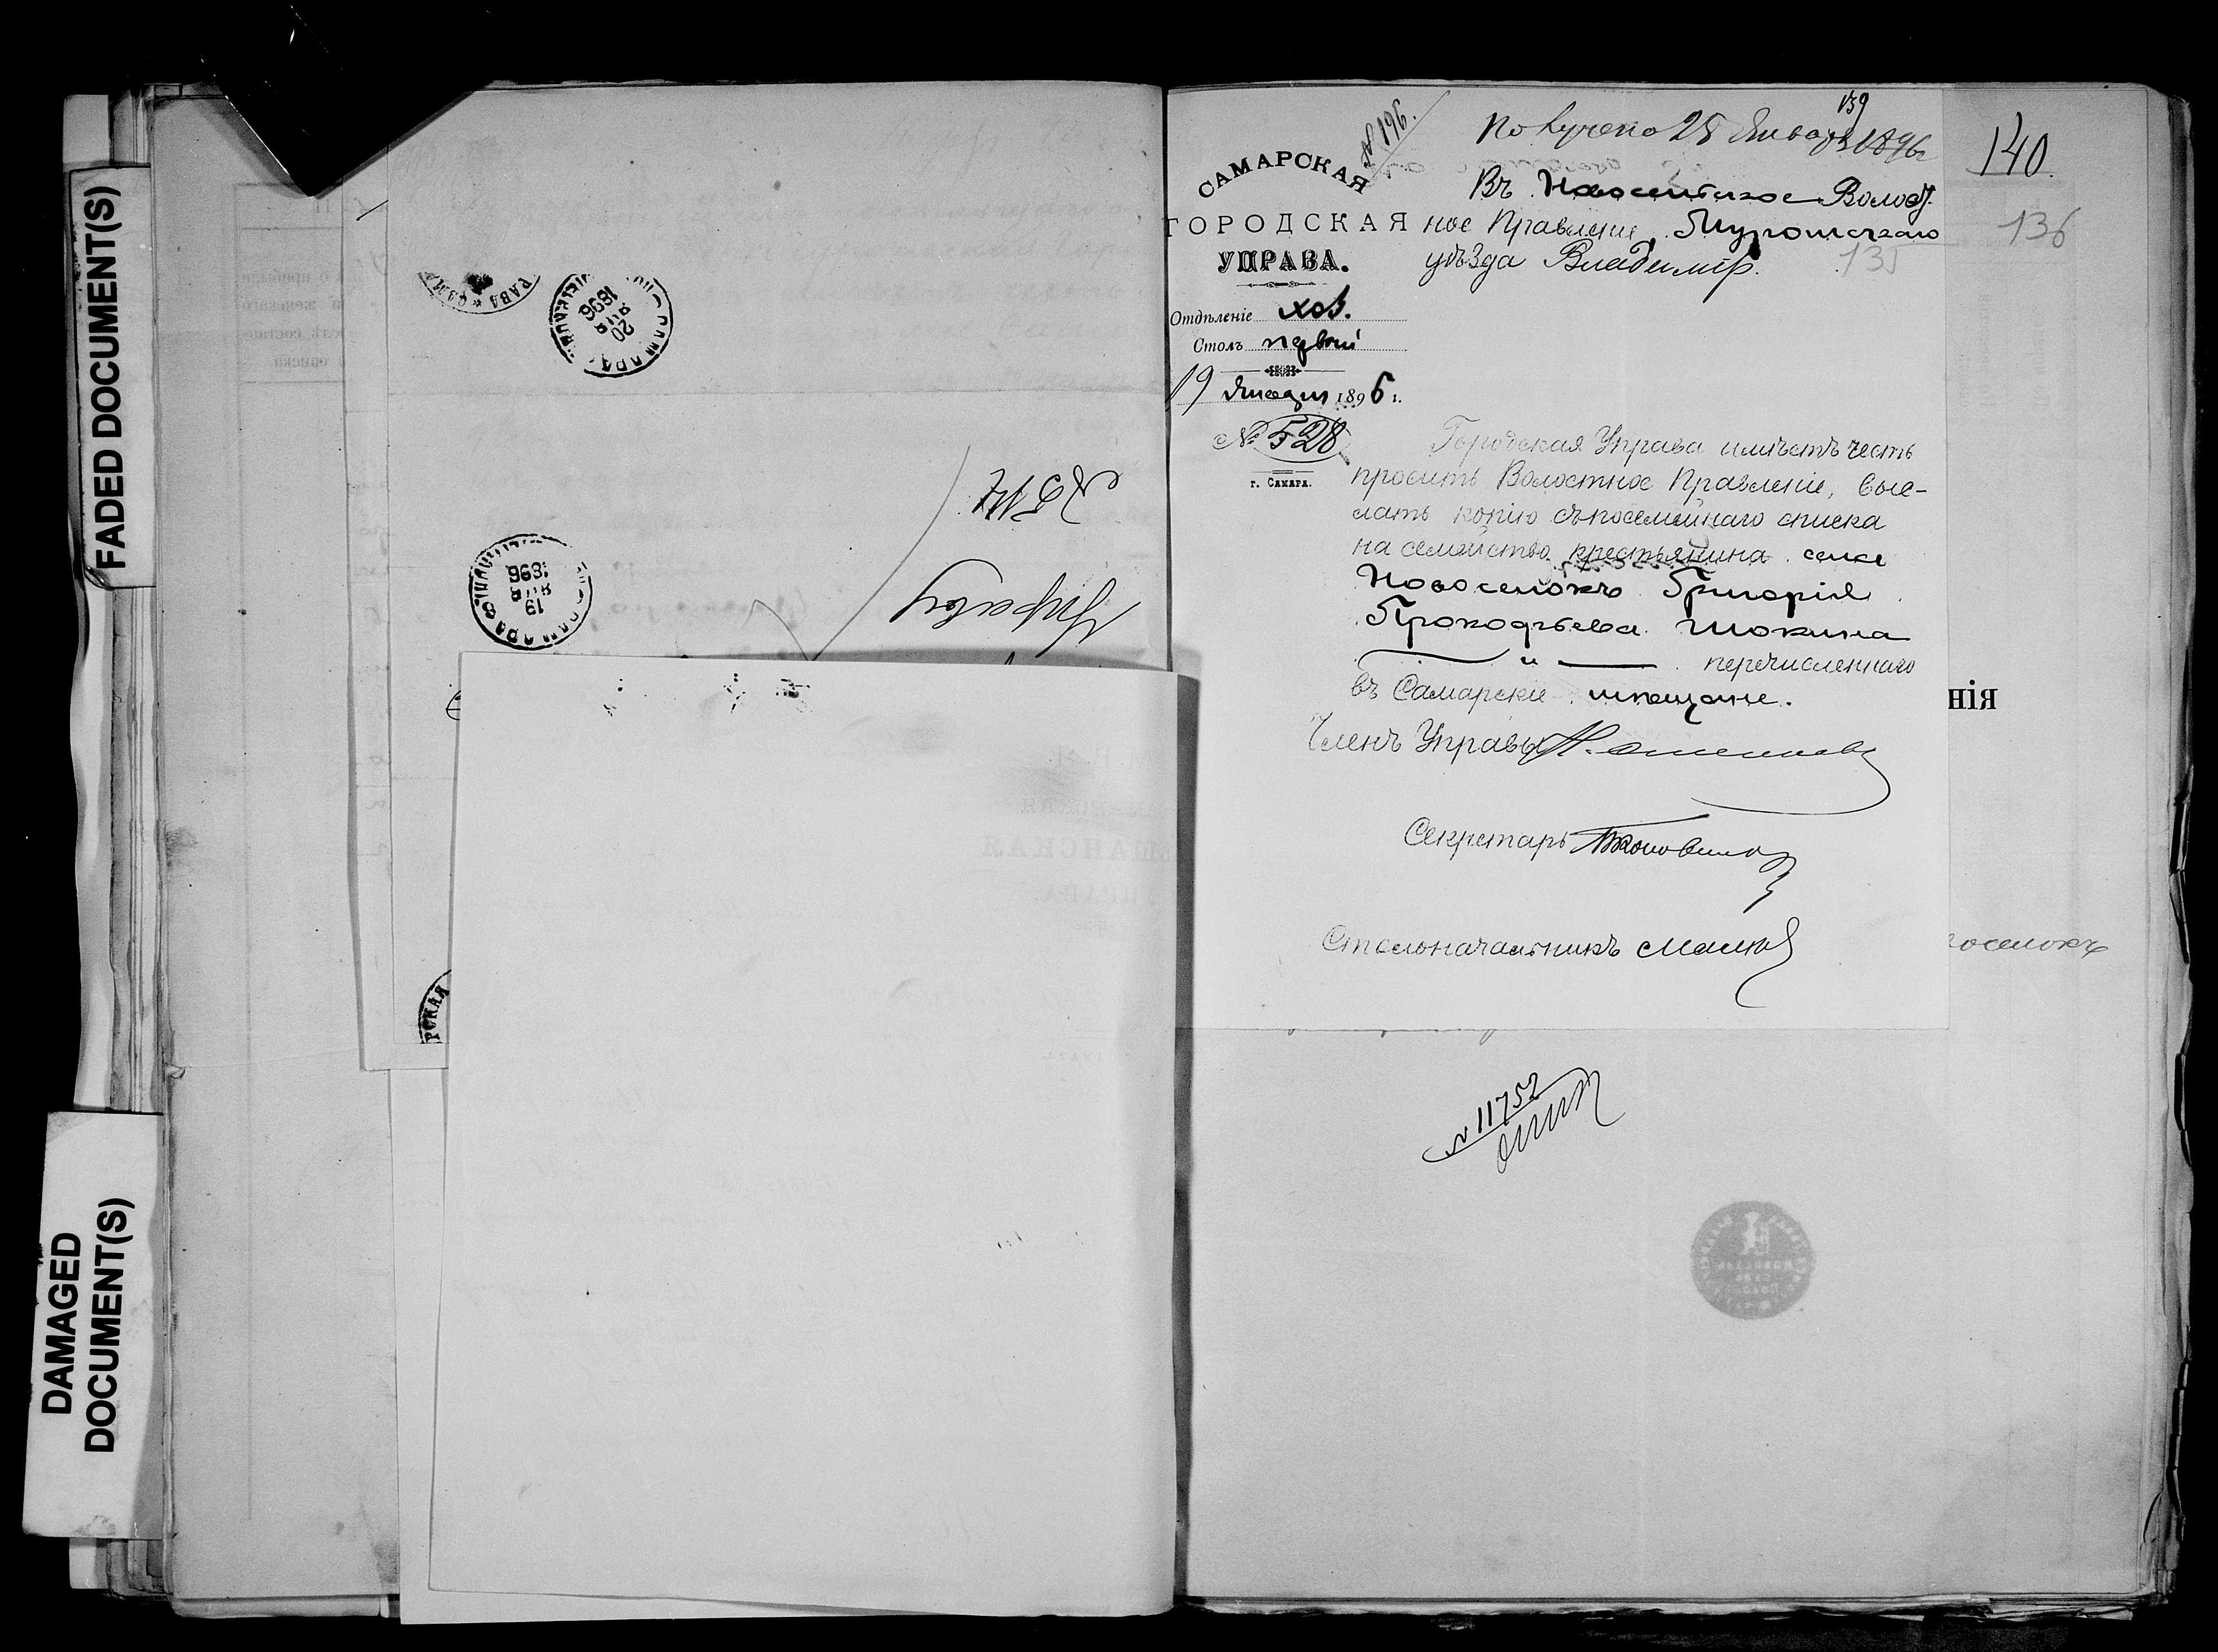 FADED DOCUMENT(S)
DAMAGED
DOCUMENT(S)
САМАРА
20
ЯНВ
1896
САМАРА
19
ЯНВ
1896
Управы
№ 196.
139
Получено 25 Января 1896 г
140.
136
135
САМАРСКАЯ
ГОРОДСКАЯ
УПРАВА.
Отдѣленіе хоз.
Столъ первый
19 Января 1896 г.
№ 528
г. Самара.
Въ Новосельское Волост-
ное Правленіе, Муромскаго
уѣзда Владимір.
Городская Управа имѣетъ честь
просить Волостное Правленіе, вые-
лать копію съ посемейнаго списка
на семейство крестьянина села
Новоселокъ Григорія
Прокофьева Шокина
и перечисленнаго
въ Самарскіе мѣщане.
Членъ Управы
Секретарь
Столоначальникъ
нія
оселокъ
№ 11752